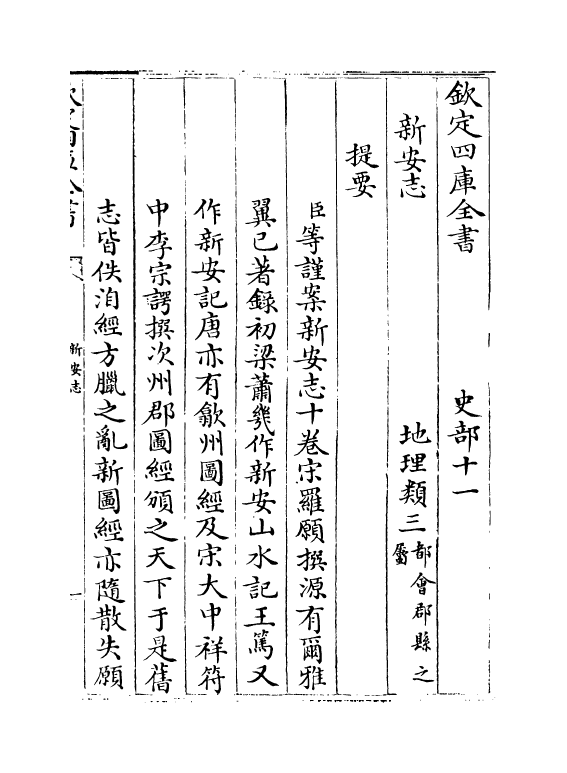 欽定四庫全書　史部十一
新安志　地理類三都會郡縣之屬
提要
臣等謹案新安志十卷宋羅願撰源有爾雅
翼已著録初梁蕭幾作新安山水記王篤又
作新安記唐亦有歙州圖經及宋大中祥符
中李宗諤撰次州郡圖經頒之天下于是舊
志皆佚洎經方臘之亂新圖經亦隨散失願
欽定四庫全書
新安志
一